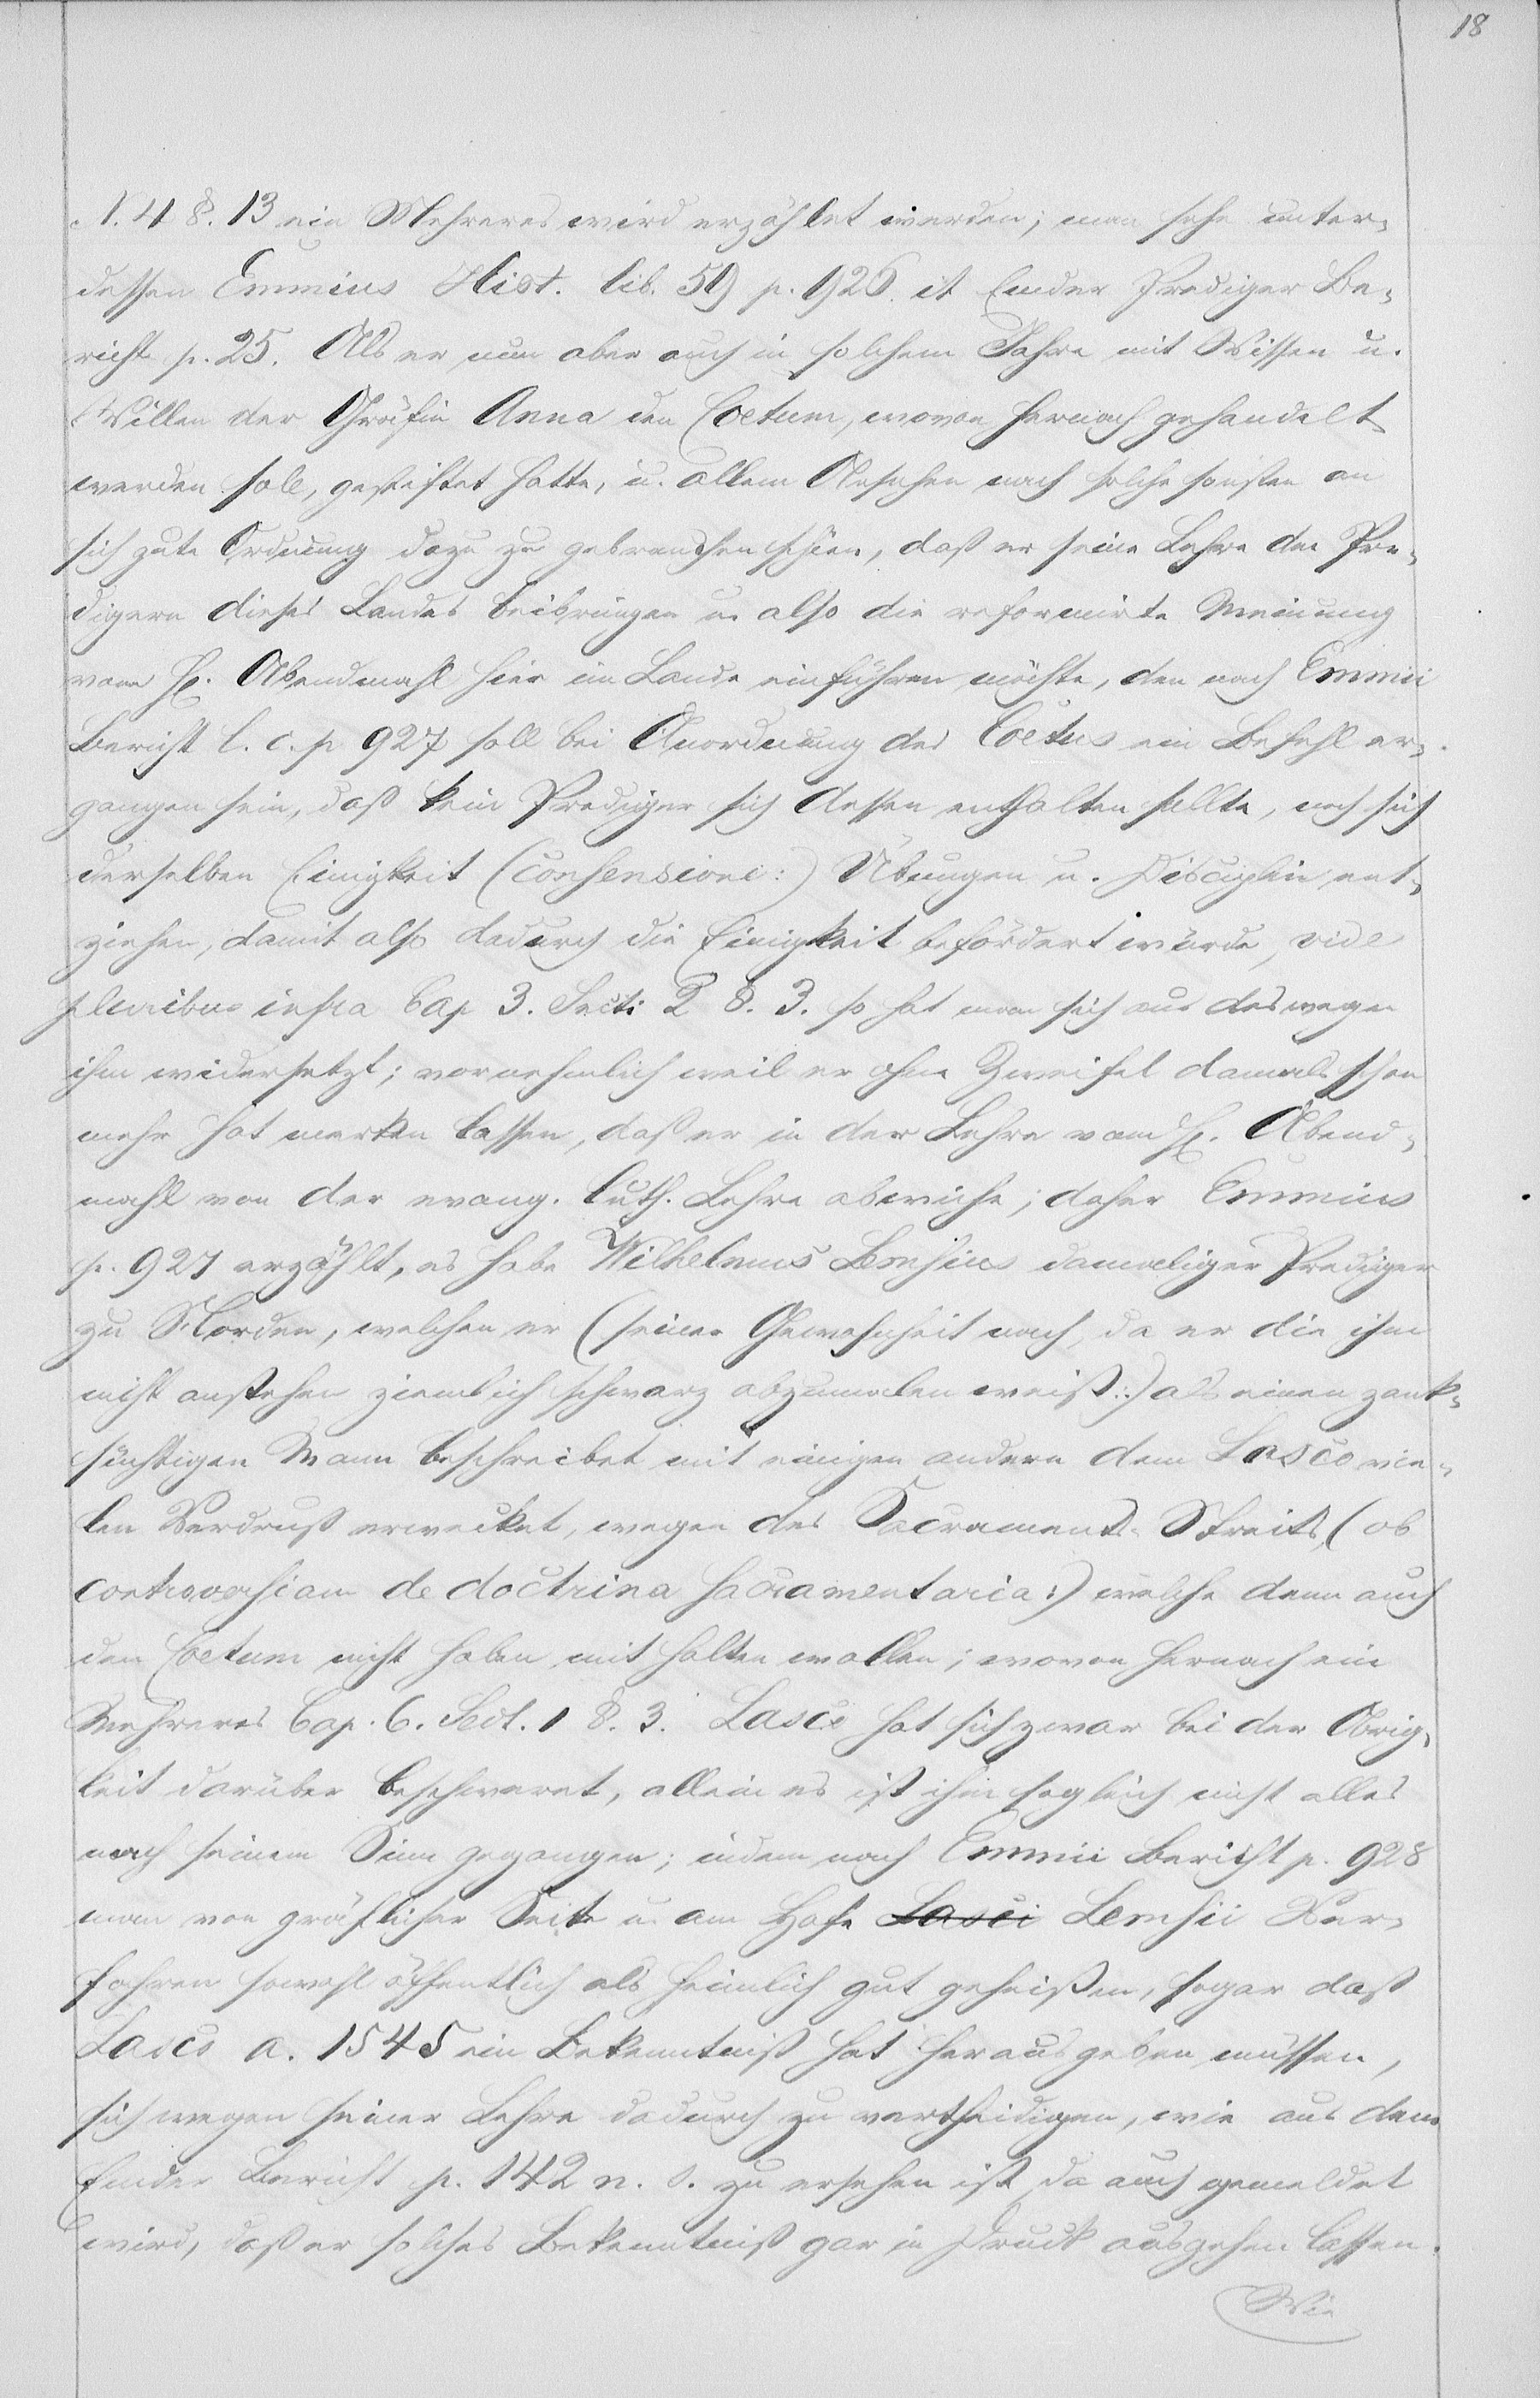 18
N. 4 §. 13 ein Mehreres wird erzählet werden; man sehe unter-
dessen Emmius Hist. lib. 59 p. 926. it Emder Prediger Be-
richt p. 25. Als er nun aber auch in solchem Jahre mit Wissen u.
Willen der Gräfin Anna den Coetum, wovon hernach gehandelt
werden soll, gestiftet hatte, u. allem Ansehen nach solche sonsten an
sich gute Ordnung dazu zu gebrauchen schien, daß er seine Lehre den Pre-
digern dieses Landes beibringen u. also die reformirte Meinung
vom H. Abendmahl hier im Lande einführen möchte, den nach Emmii
Bericht l. c. p 927 soll bei Anordnung des Coetus ein Befehl er-
gangen sein, daß kein Prediger sich dessen enthalten sollte, noch sich
derselben Einigkeit (consensione:) Übungen u. Disciplin ent-
ziehen, damit also dadurch die Einigkeit befördert würde, vide
pluribus infra Cap 3. Sect: 2 §. 3. so hat man sich aus deswegen
ihm widersetzt; vornehmlich weil er ohne Zweifel damals schon
mehr hat merken lassen, daß er in der Lehre vom H. Abend-
mahl von der evang. luth. Lehre abweiche; daher Emmius
p. 927 erzählt, es habe Wilhelmus Lemsius damaliger Prediger
zu Norden, welchen er (seiner Gewohnheit nach, da er die ihm
nicht anstehen ziemlich schwarz abzumalen weiß:) als einen zank-
süchtigen Mann beschreibet mit einigen andern dem Lasco vie-
len Verdruß erwecket, wegen des Sacraments-Streits, (ob
controversiam de doctrina sacramentaria:) welche denn auch
den Coetum nicht haben mit halten wollen; wovon hernach ein
Mehreres Cap. 6. Sect. 1 §. 3. Lasco hat sich zwar bei der Obrig-
keit darüber beschweret, allein es ist ihm sogleich nicht alles
nach seinem Sinn gegangen; indem nach Emmii Bericht p. 928
man von gräflicher Seite u. am Hofe Lasci Lemsii Ver-
fahren sowohl öffentlich als heimlich gut geheißen, sogar daß
Lasco a. 1545 ein Bekenntniß hat herausgeben müssen,
sich wegen seiner Lehre dadurch zu vertheidigen, wie aus dem
Emder Bericht p. 142 n. 8. zu ersehen ist, da auch gemeldet
wird, daß er solches Bekenntniß gar in Druck ausgehen lassen.
Wie